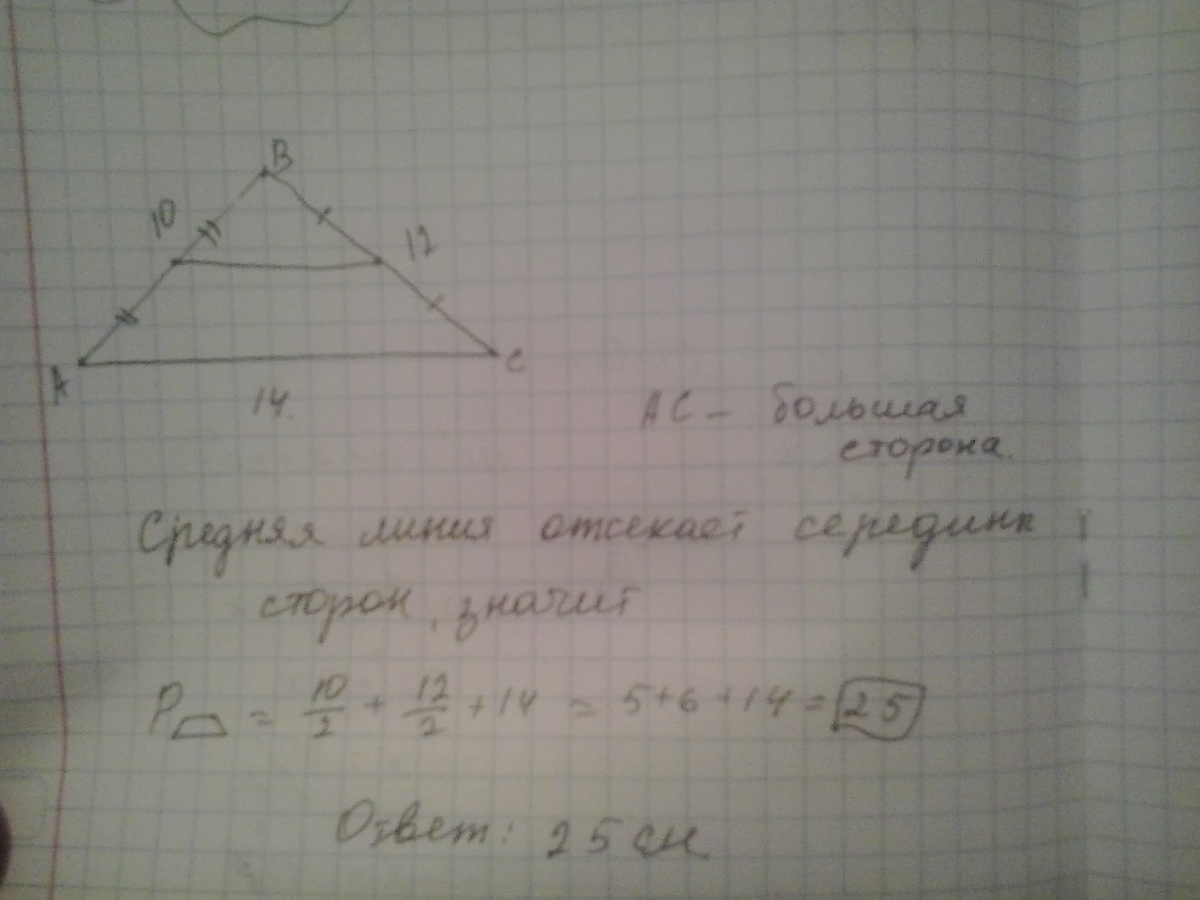 B
10
12
A
C
14.
AC – большая
сторона.
Средняя линия отсекает середины
сторон, значит
P = 10/2 + 12/2 + 14 = 5+6+14 = 25
Ответ: 25 см